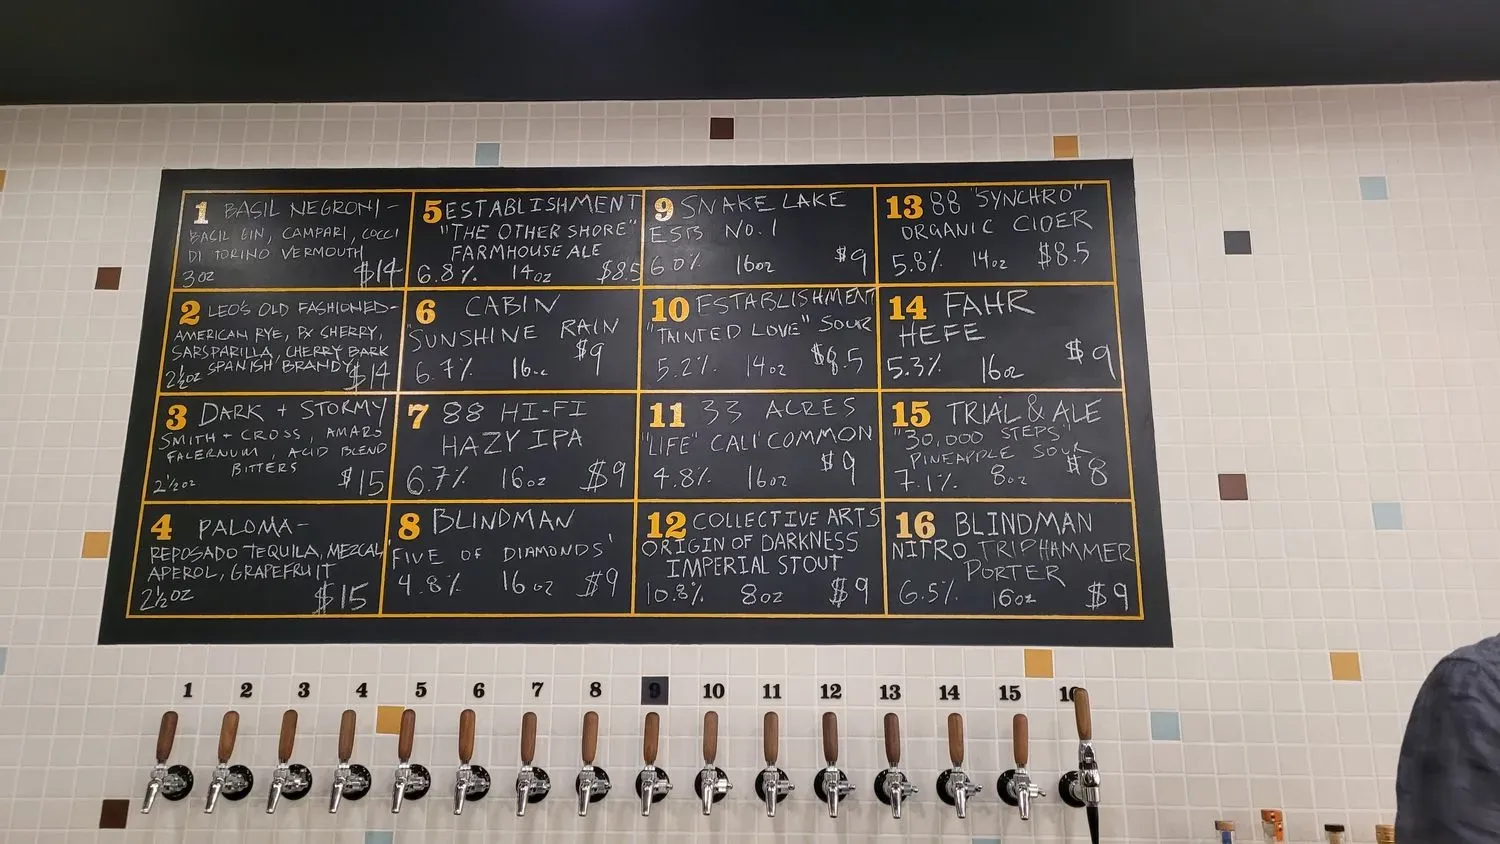 1 BASIL NEGRONI -
BASIL GIN, CAMPARI, COCCI
DI TORINO VERMOUTH
3oz $14
2 LEO'S OLD FASHIONED-
AMERICAN RYE, PX SHERRY,
SARSPARILLA, CHERRY BARK
SPANISH BRANDY
2½oz $14
3 DARK + STORMY
SMITH + CROSS, AMARO
FALERNUM, ACID BLEND
BITTERS
2½oz $15
4 PALOMA-
REPOSADO TEQUILA, MEZCAL
APEROL, GRAPEFRUIT
2½oz $15
5 ESTABLISHMENT
"THE OTHER SHORE"
FARMHOUSE ALE
6.8% 14oz $8.5
6 CABIN
"SUNSHINE RAIN
$9
6.7% 16oz
7 88 HI-FI
HAZY IPA
6.7% 16oz $9
8 BLINDMAN
'FIVE OF DIAMONDS'
4.8% 16oz $9
9 SNAKE LAKE
ESB No.1
6.0% 16oz $9
10 ESTABLISHMENT
"TAINTED LOVE" SOUR
5.2% 14oz $8.5
11 33 ACRES
"LIFE" CALI COMMON
4.8% 16oz $9
12 COLLECTIVE ARTS
ORIGIN OF DARKNESS
IMPERIAL STOUT
10.8% 8oz $9
13 88 "SYNCHRO"
ORGANIC CIDER
5.8% 14oz $8.5
14 FAHR
HEFE
5.3% 16oz $9
15 TRIAL & ALE
"30,000 STEPS"
PINEAPPLE SOUR
7.1% 8oz $8
16 BLINDMAN
NITRO TRIPHAMMER
PORTER
6.5% 16oz $9
1 2 3 4 5 6 7 8 9 10 11 12 13 14 15 16